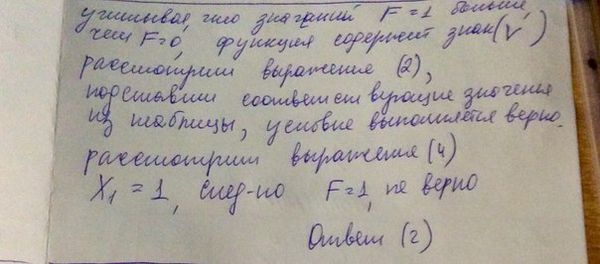 учитывая, число значений F=1 больше,
чем F=0, функция содержит знак (V)
рассмотрим выражение (2),
подставим соответствующие значения
из таблицы, условие выполняется верно.
рассмотрим выражения (4)
X₁ = 1, след-но F=1, не верно
Ответ (2)